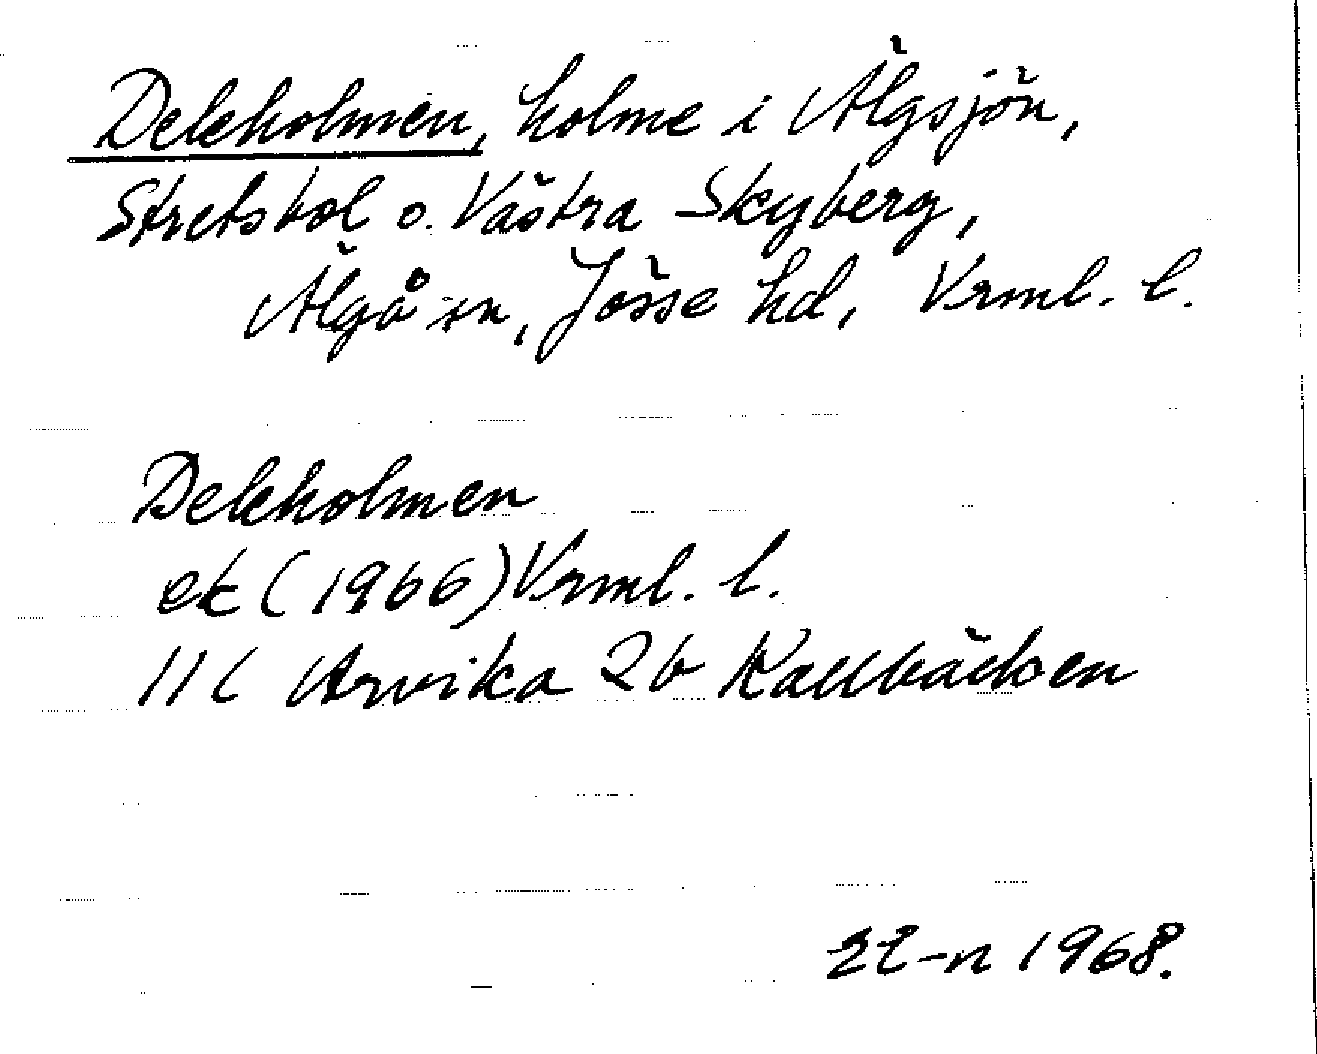 Deleholmen, holme i Älgsjön,
Stretsbol o. Västra Skyberg,
Älgå sn, Jösse hd, Vrml. l.
Deleholmen
ek (1966) Vrml. l.
11C Arvika 2b Kallbäcken
1968.